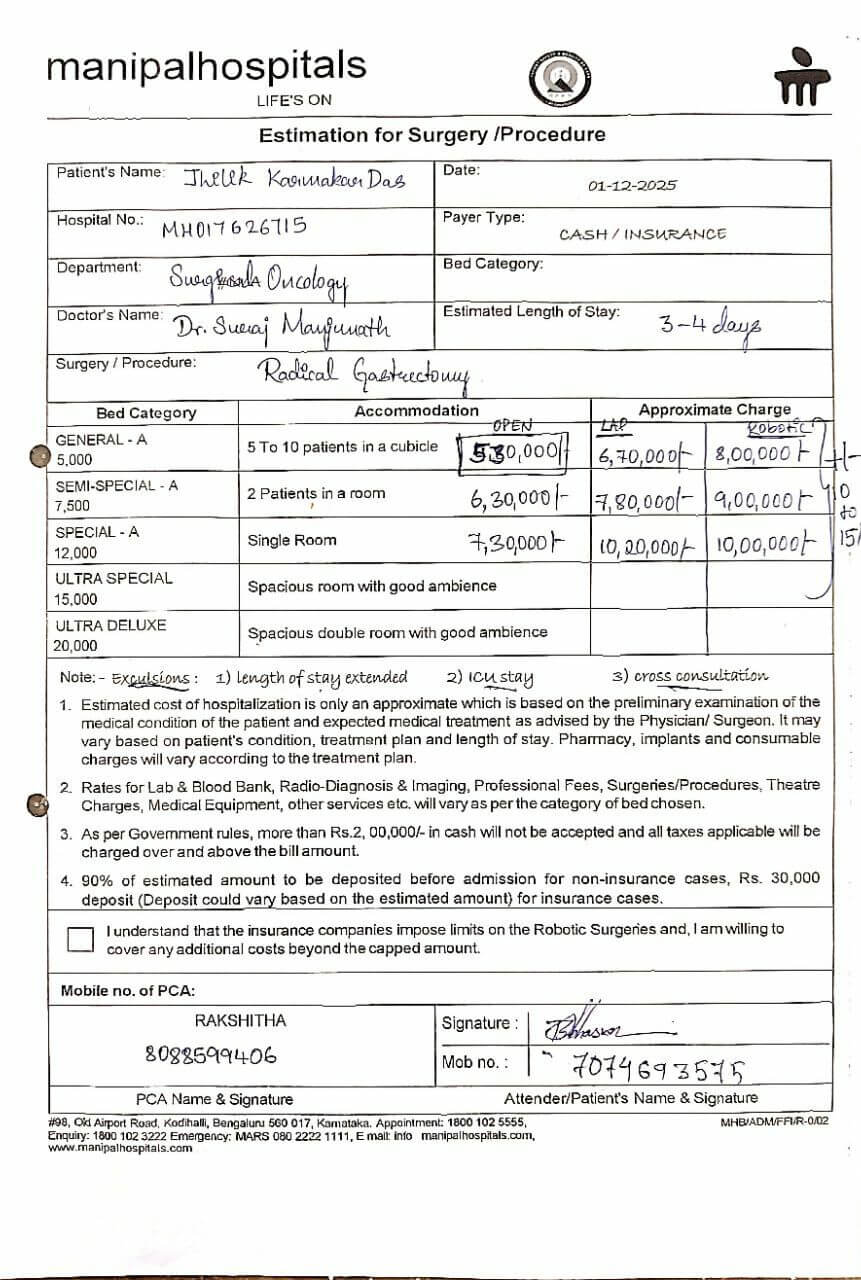 manipalhospitals
LIFE'S ON
Estimation for Surgery /Procedure
Patient's Name: Jhelek Karmakar Das
Date: 01-12-2025
Hospital No.: MH017626715
Payer Type: CASH / INSURANCE
Department: Oncology
Bed Category:
Doctor's Name: Dr. Suraj Manjunath
Estimated Length of Stay: 3-4 days
Surgery / Procedure: Radical Gastrectomy
Bed Category Accommodation Approximate Charge
OPEN LAP ROBOTIC
GENERAL - A
5,000
5 To 10 patients in a cubicle 530,000/- 6,70,000/- 8,00,000/-
SEMI-SPECIAL - A
7,500
2 Patients in a room 6,30,000/- 7,80,000/- 9,00,000/-
SPECIAL - A
12,000
Single Room 7,30,000/- 10,20,000/- 10,00,000/-
+/-
10
to
15/
ULTRA SPECIAL
15,000
Spacious room with good ambience
ULTRA DELUXE
20,000
Spacious double room with good ambience
Note: - Exculsions : 1) length of stay extended 2) ICU stay 3) cross consultation
1. Estimated cost of hospitalization is only an approximate which is based on the preliminary examination of the
medical condition of the patient and expected medical treatment as advised by the Physician/ Surgeon. It may
vary based on patient's condition, treatment plan and length of stay. Pharmacy, implants and consumable
charges will vary according to the treatment plan.
2. Rates for Lab & Blood Bank, Radio-Diagnosis & Imaging, Professional Fees, Surgeries/Procedures, Theatre
Charges, Medical Equipment, other services etc. will vary as per the category of bed chosen.
3. As per Government rules, more than Rs.2, 00,000/- in cash will not be accepted and all taxes applicable will be
charged over and above the bill amount.
4. 90% of estimated amount to be deposited before admission for non-insurance cases, Rs. 30,000
deposit (Deposit could vary based on the estimated amount) for insurance cases.
I understand that the insurance companies impose limits on the Robotic Surgeries and, I am willing to
cover any additional costs beyond the capped amount.
Mobile no. of PCA:
RAKSHITHA
8088599406
Signature :
Mob no. : 7074693575
PCA Name & Signature
Attender/Patient's Name & Signature
#98, Old Airport Road, Kodihalli, Bengaluru 560 017, Karnataka. Appointment: 1800 102 5555,
Enquiry: 1800 102 3222 Emergency: MARS 080 2222 1111, E mail: info manipalhospitals.com,
www.manipalhospitals.com
MHB/ADM/FFI/R-0/02